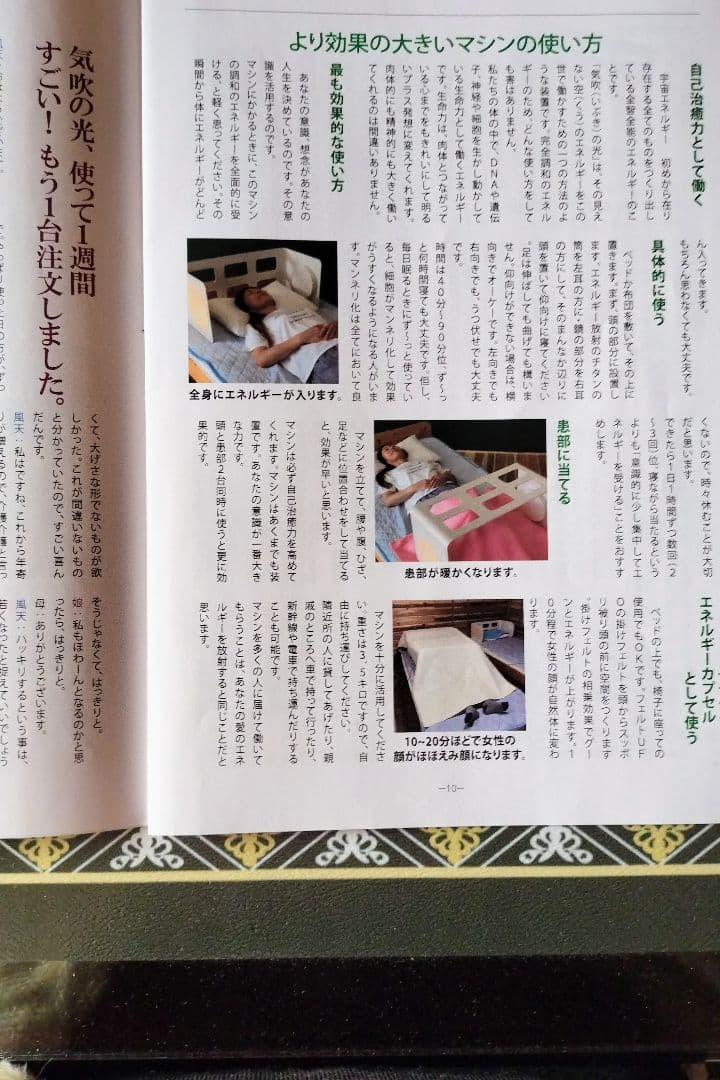 より効果の大きいマシンの使い方
自己治癒力として働く
宇宙エネルギー 初めから在り
存在する全てのものをつくり出し
ている全智全能のエネルギーのこ
とです。
「気吹(いぶき)の光」は、その見え
ない空(くう)のエネルギーをこの
世で働かすための一つの方法のよ
うな装置です。完全調和のエネル
ギーのため、どんな使い方をして
も害はありません。
私たちの体の中で、DNAや遺伝
子、神経や細胞を生かし動かして
いる生命力として働くエネルギー
です。生命力は、肉体とつながって
いる心までをもきれいにして明る
いプラス発想に変えてくれます。
肉体的にも精神的にも大きく働い
てくれるのは間違いありません。
最も効果的な使い方
あなたの意識、想念があなたの
人生を決めているのです。その意
識を活用するのです。
マシンにかかるときに、このマシン
の調和のエネルギーを全面的に受
ける、と軽く思ってください。その
瞬間から体にエネルギーがどんど
ん入ってきます。
もちえん思わなくても大丈夫です。
具体的に使う
ベッドか布団を敷いて、その上に
置きます。まず、頭の部分に設置し
ます。エネルギー放射のチタンの
筒を左耳の方に・鏡の部分を右耳
の方にして、そのまんなか辺りに
頭を置いて仰向けに寝てください
。足は伸ばしても曲げても構いま
せん。仰向けができない場合は、横
向きでオーケーです。左向きでも
右向きでも、うつ伏せでも大丈夫
です。
時間は40分～90分位、ず～っ
と何時間寝ても大丈夫です。但し、
毎日眠るときにず～っと使ってい
ると、細胞がマンネリ化して効果
がうすくなるようになる人がいま
す。マンネリ化は全てにおいて良
くないので、時々休むことが大切
だと思います。
できたら1日1時間ずつ数回(2
～3回)位、寝ながら当たるという
よりも「意識的に少し集中してエ
ネルギーを受けることをおすす
めします。
全身にエネルギーが入ります。
患部に当てる
マシンを立てて、腰や腹、ひざ、
足などに位置合わせをして当てる
と、効果が早いと思います。
マシンは必ず自己治癒力を高めて
くれます。マシンはあくまでも装
置です。あなたの意識が一番大き
な力です。
頭と患部2台同時に使うと更に効
果的です。
患部が暖かくなります。
エネルギーカプセル
として使う
ベッドの上でも、椅子に座っての
使用でもOKです。フェルトUF
Oの掛けフェルトを頭からスッポ
リ被り頭の前に空間をつくります
。掛けフェルトの相乗効果でグー
ンとエネルギーが上がります。1
0分程で女性の顔が自然体に変わ
ります。
10~20分ほどで女性の
顔がほほえみ顔になります。
マシンを十分に活用してくださ
い。重さは3.5キロですので、自
由に持ち運びしてください。
隣近所の人に貸してあげたり、親
戚のところへ車で持って行ったり、
新幹線や電車で持ち運んだりする
ことも可能です。
マシンを多くの人に届けて働いて
もらうことは、あなたの愛のエネ
ルギーを放射すると同じことだと
思います。
―10―
気吹の光、使って1週間
すごい！もう1台注文しました。
くて、大げさな形でないものが欲
しかった。これが間違いないもの
と分かっていたので、すごい喜ん
だんです。
風天：私はですね、これから年寄
そうじゃなくて、はっきりと。
娘：私もほわーんとなるのかと思
ったら、はっきりと。
母：ありがとうございます。
風天：ハッキリするという事は、
若くなったと捉えていいでしょう